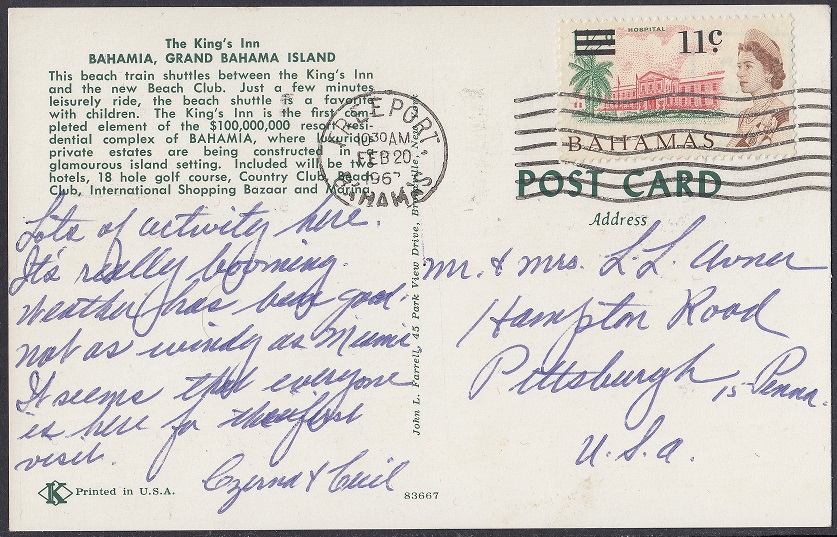 The King's Inn
BAHAMIA, GRAND BAHAMA ISLAND
This beach train shuttles between the King's Inn
and the new Beach Club. Just a few minutes
leisurely ride, the beach shuttle is a favorite
with children. The King's Inn is the first com-
pleted element of the $100,000,000 resort resi-
dential complex of BAHAMIA, where
private estates are being constructed in a
glamourous island setting. Included will be two
hotels, 18 hole golf course, Country Club, Beach
Club, International Shopping Bazaar and Marina.
Lots of activity here.
It's really booming.
Weather has been good.
not as windy as Miami
It seems that everyone
is here for their first
visit.
Czerna & Cecil
Printed in U.S.A.
K
83667
John L. Farrell, 45 Park View Drive, New York
FREEPORT
10 30 AM
FEB 20
BAHAMAS
HOSPITAL
11c
BAHAMAS
POST CARD
Address
Mr. & Mrs. L.L. Avner
Hampton Road
Pittsburgh 15 - Penna.
U.S.A.